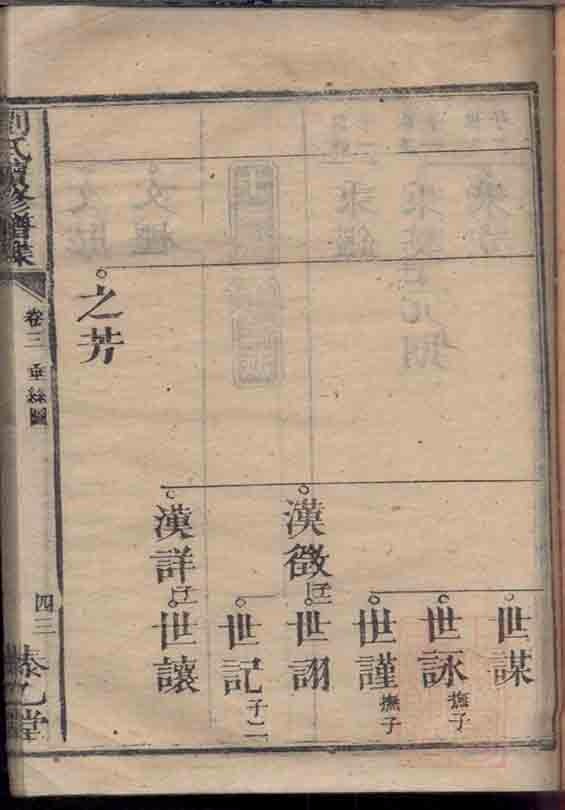 世謀
世詠 撫子
世謹 撫子
漢徵
世詡
世記 子二
漢詳
世讓
之芳
劉氏續修譜牒
卷三 垂絲圖
四三